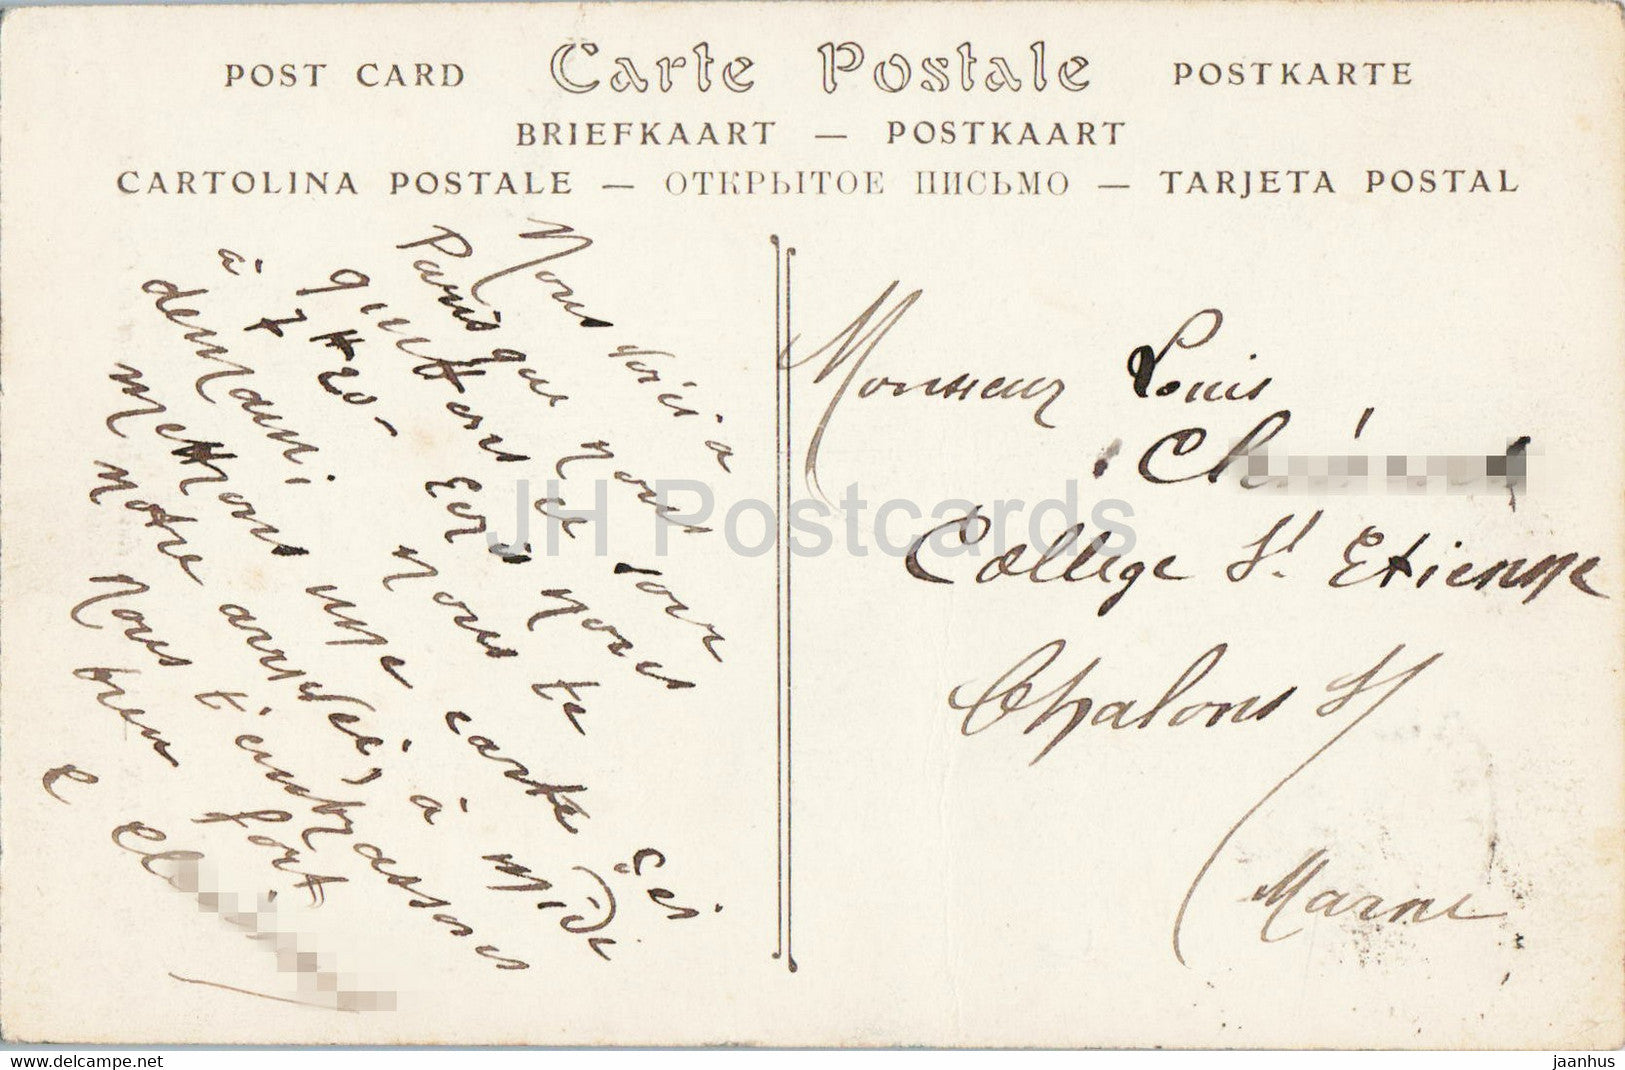 POST CARD Carte Postale POSTKARTE
BRIEFKAART — POSTKAART
CARTOLINA POSTALE — ОТКРЫТОЕ ПИСЬМО — TARJETA POSTAL
Nous voici à
Paris que nous
quittons ce soir
à 7 H 20 - Ecris nous
demain. Nous te
mettrons une carte dès
notre arrivée, à midi
Nous t'embrassons
bien fort
Monsieur Louis
College St Etienne
Chalons s/
Marne
JH Postcards
www.hippostcard.com
jaanhus